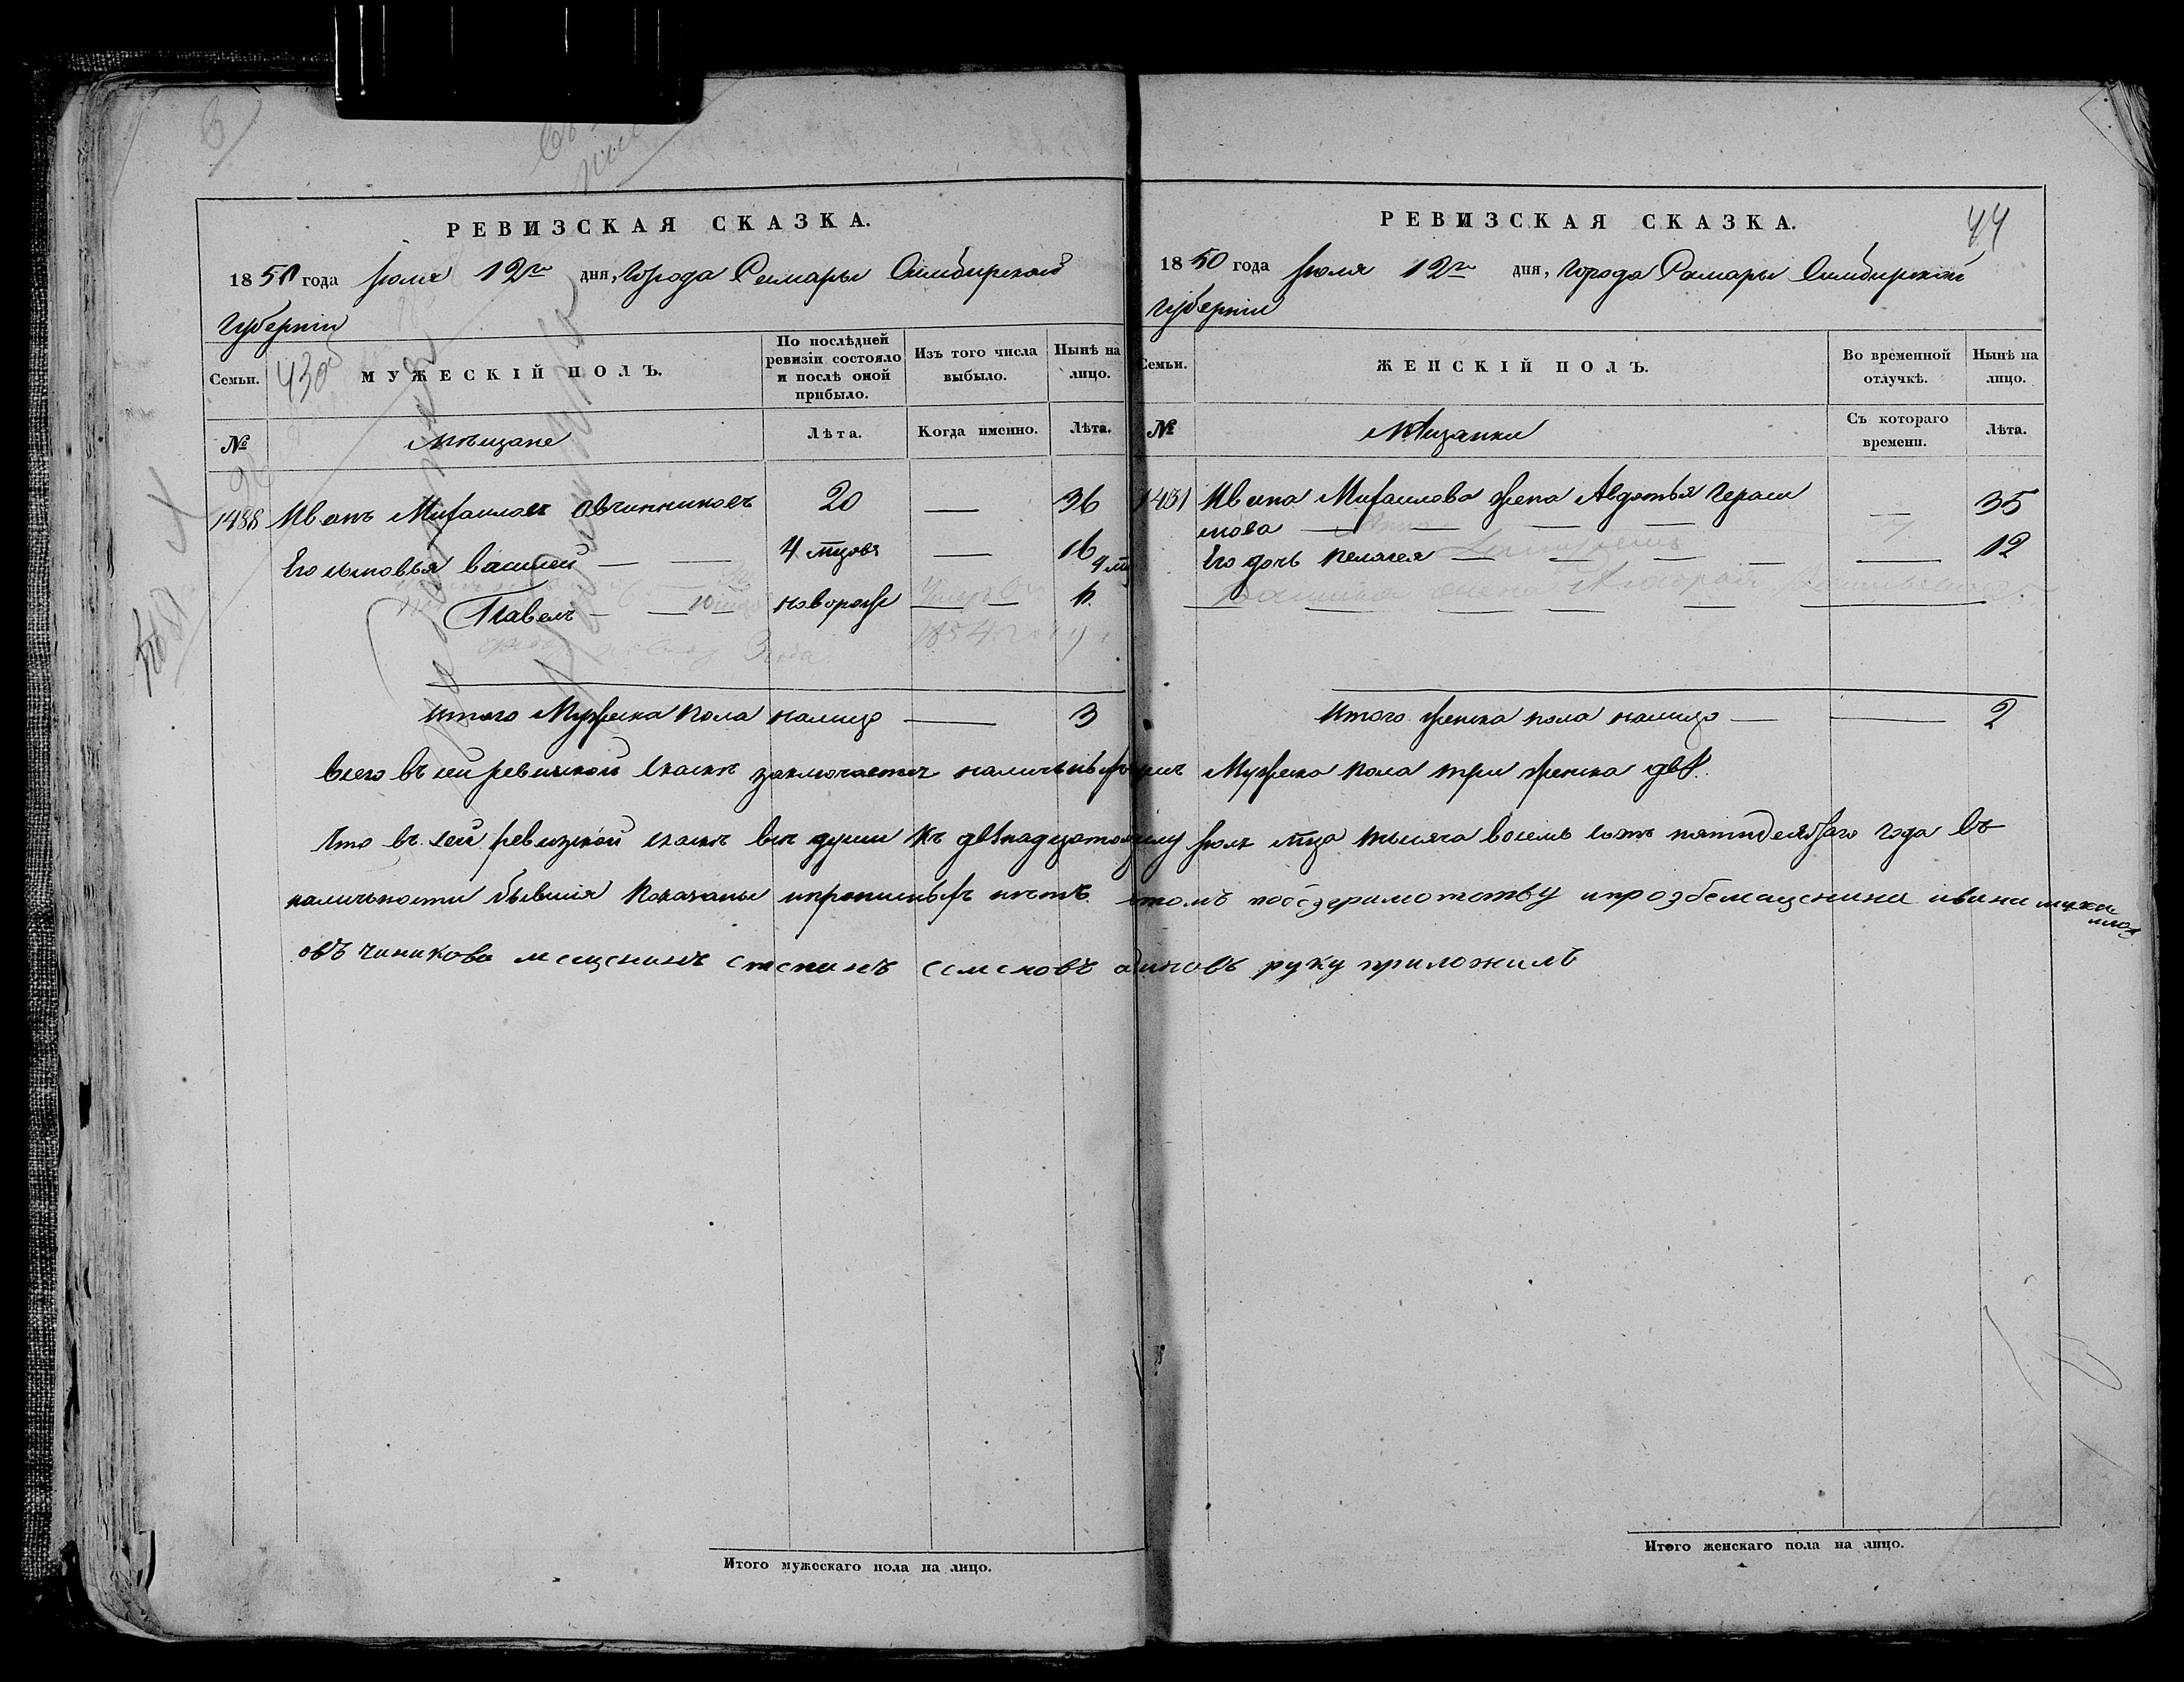 РЕВИЗСКАЯ СКАЗКА.
1850 года Іюля 12го дня, Города Самары Симбирской
Губерніи
Семьи.
430
МУЖЕСКІЙ ПОЛЪ.
По послѣдней ревизіи состояло и послѣ оной прибыло.
Изъ того числа выбыло.
Нынѣ на лицо.
№
Мѣщане
Лѣта.
Когда именно.
Лѣта.
1488 Иванъ Михаиловъ Овчинниковъ 20 — 36
Его сыновья Василей — — 4 мцовъ — 16
Павелъ — — новорож — —
Итого Мужеска пола налицо — 3
РЕВИЗСКАЯ СКАЗКА.
44
1850 года Іюля 12го дня, Города Самары Симбирской
Губерніи
Семьи.
ЖЕНСКІЙ ПОЛЪ.
Во временной отлучкѣ.
Нынѣ на лицо.
№
Мѣщанки
Съ котораго времени.
Лѣта.
Ивана Михаилова жена Авдотья Гераси
мова — — — — — 35
Его дочь Пелагея — — — — — 12
Итого женска пола налицо — — 2
Всего въ сей ревизской сказкѣ заключается наличныхъ Мужеска пола три женска двѣ.
Что въ сей ревизской сказкѣ всѣ души къ двѣнадцатому Іюля мца тысяча восемь сотъ пятидесятаго года въ
наличности бывшия показаны и прописныхъ нѣтъ. втомъ по безграмотству ипрозбе мещенина ивана михаи
лова
овъчиникова мещенинъ степанъ семеновъ руку приложилъ
Итого мужескаго пола на лицо.
Итого женскаго пола на лицо.